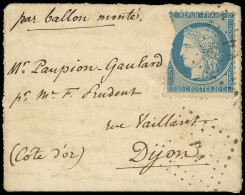 par ballon monté
REPUB. FRANC.
Mr. Paupion-Gaulard
pr. Mr. F. Prudent
20 C. POSTES 20 C.
rue Vaillant
(Côte d'or) Dijon